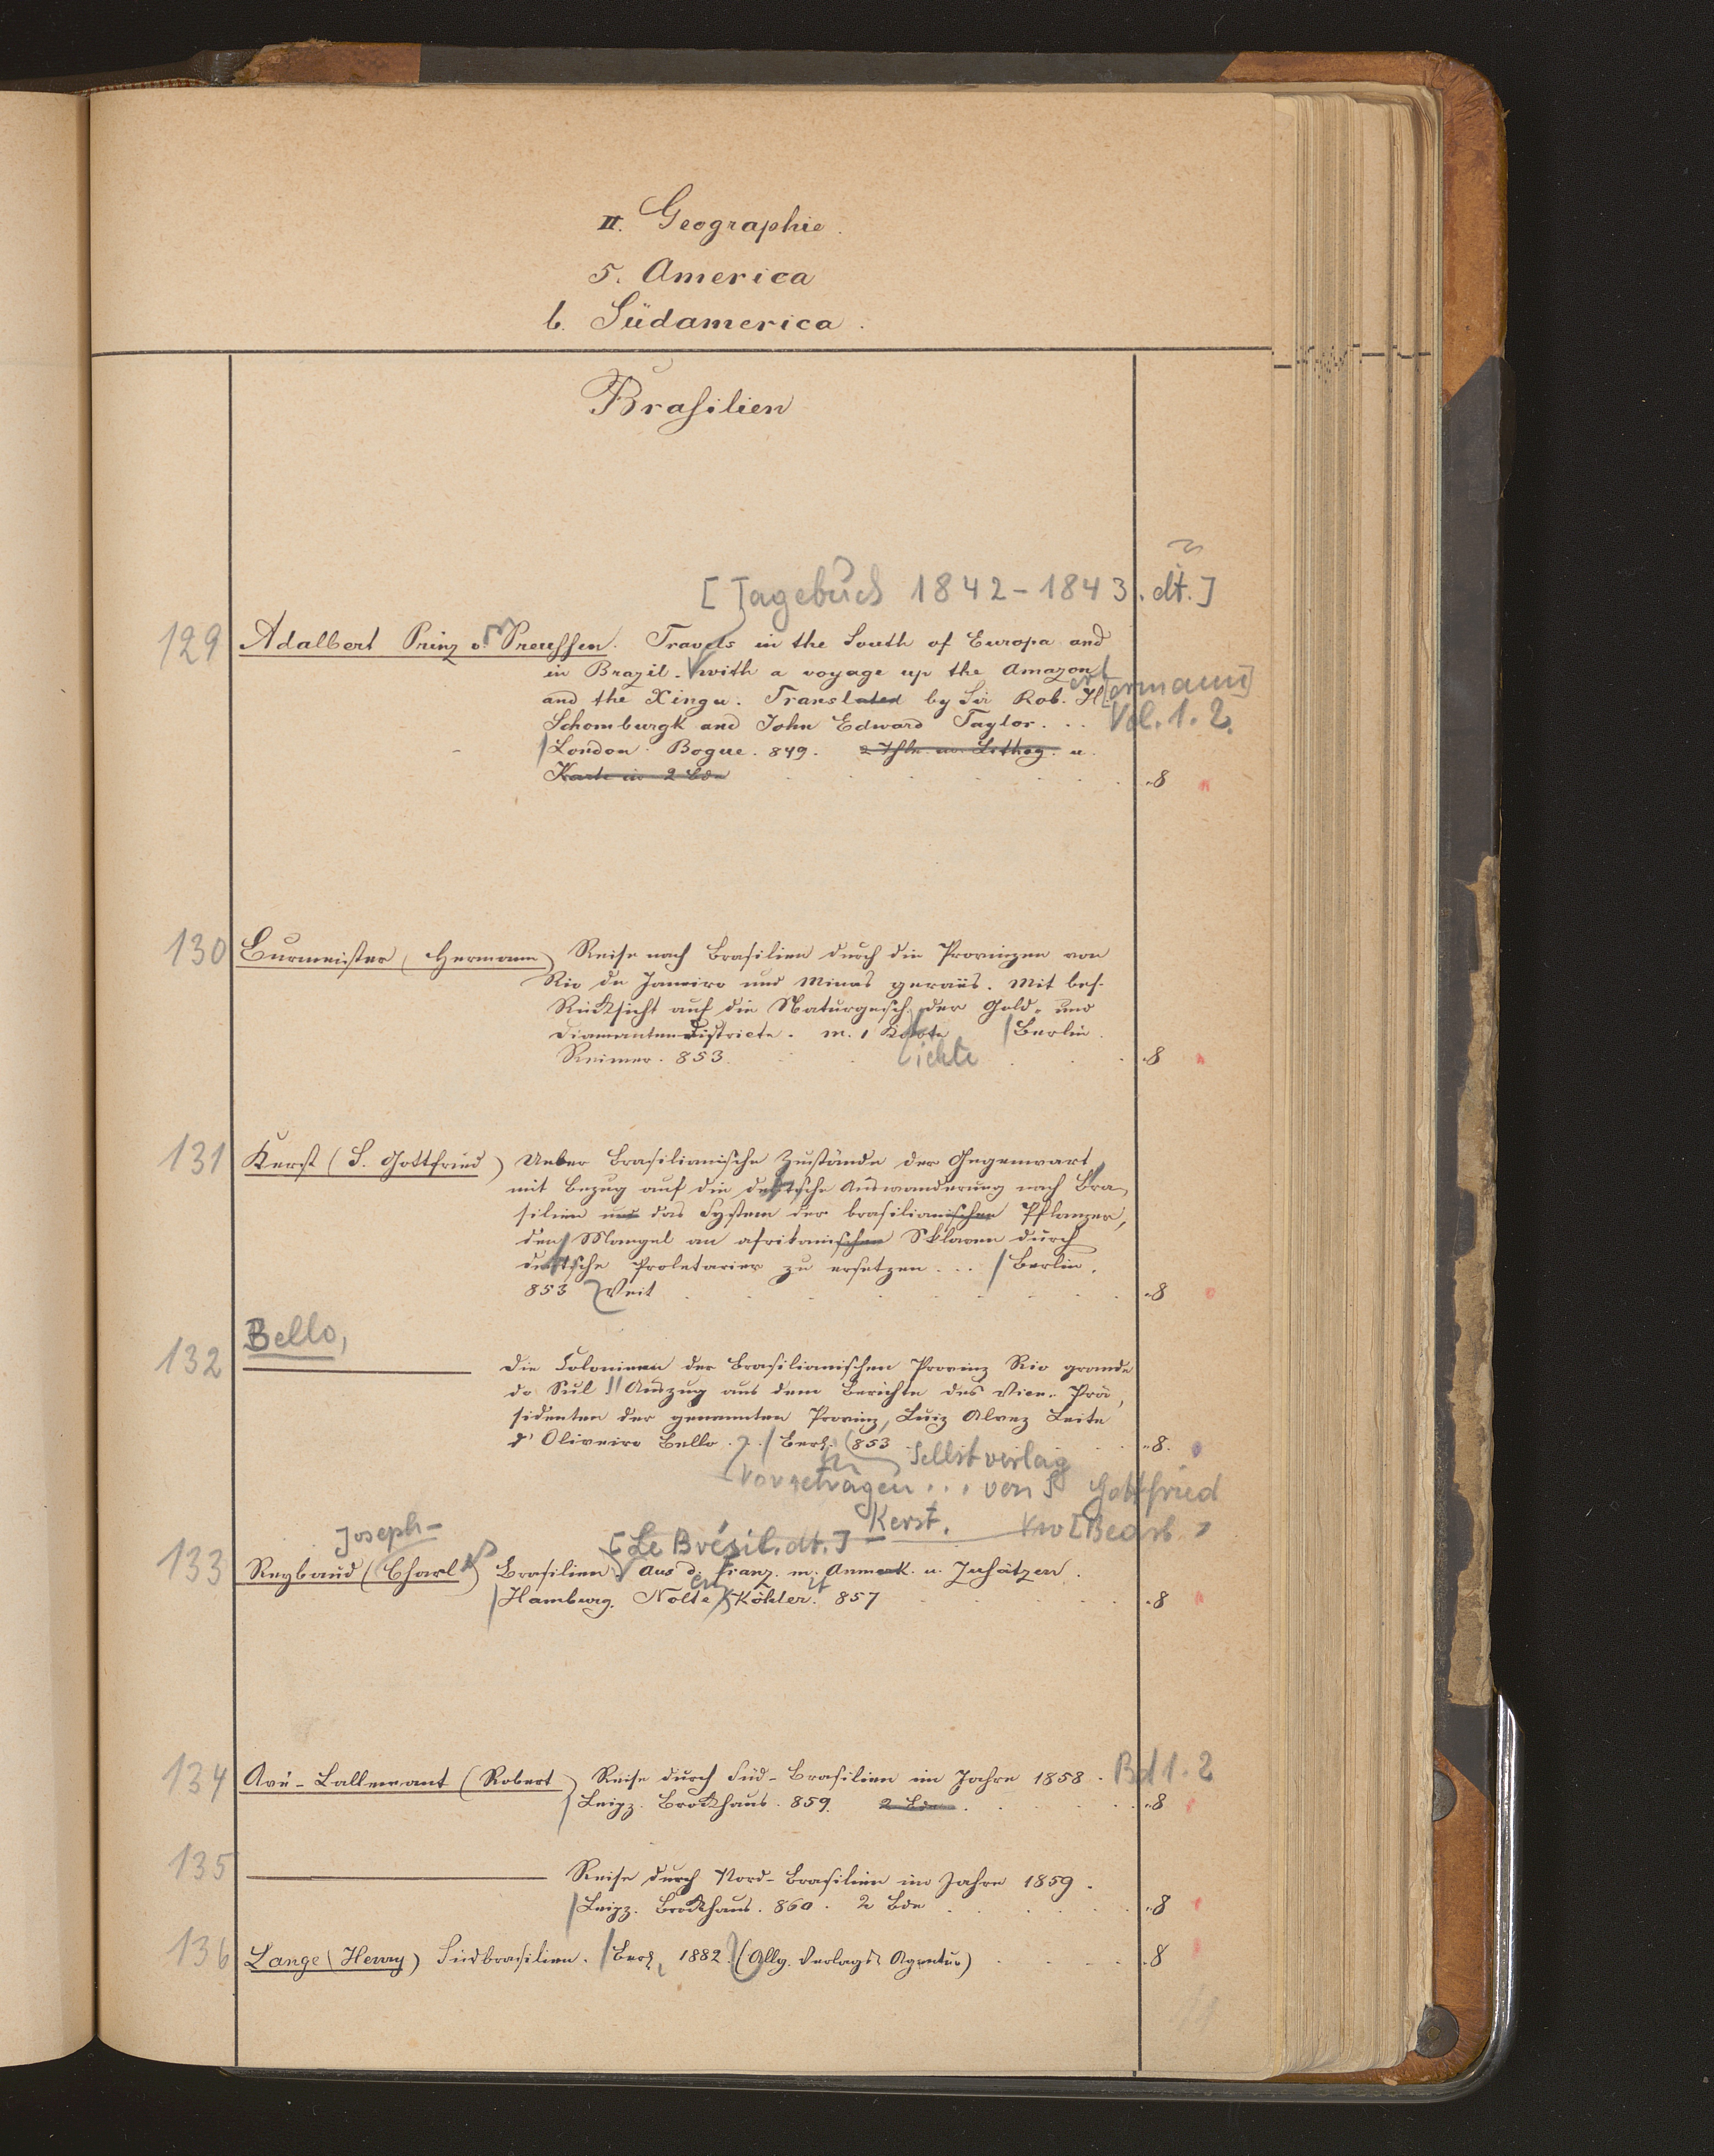 II. Geographie.
5. America
b. Südamerica.
Brasilien
[Tagebuch 1842-1843. dt.]
129 Adalbert Prinz v. Preussen. Travels in the South of Europa and
in Brazil. with a voyage up the Amazon
and the Xingu. Translated by Sir Rob. H[ermann]
Schomburgk and John Edward Taylor. .. Vol. 1. 2.
London. Bogue. 849. u.
Karte in 2 Bde 8
130 Burmeister, (Hermann) Reise nach Brasilien durch die Provinzen von
Rio de Janeiro und Minas geraës. Mit bes.
Rücksicht auf die Naturgesch. der Gold- und
Diamantendistricte. m. 1 Karte Berlin.
Reimer. 853. ichte 8
131 Kerst (S. Gottfried) Ueber Brasilianische Zustände der Gegenwart,
mit Bezug auf die deutsche Auswanderung nach Bra-
silien und das System der brasilianischen Pflanzer,
den Mangel an afrikanischen Sklaven durch
deutsche Proletarier zu ersetzen... Berlin.
853 Veit 8
Bello,
132 Die Colonieen der Brasilianischen Provinz Rio grande
do Sul Auszug aus dem Berichte des Vice-Prä-
sidenten der genannten Provinz, Luiz Alvez Leite
d'Oliveiro Bello. Berl. 853 8.
Selbstverlag
Vorgetragen... von S Gottfried
Kerst. [Bearb.
Joseph- [Le Brésil. dt.]
133 Reybaud (Charles) Brasilien. Aus d. Franz. m. Anmerk. u. Zusätzen.
Hamburg. Nolte & Köhler. 857 8
134 Avé-Lallemant (Robert) Reise durch Süd-Brasilien im Jahre 1858. Bd 1. 2
Leipz. Brockhaus. 859. 2 Bde 8
135 Reise durch Nord-Brasilien im Jahre 1859.
Leipz. Brockhaus. 860. 2 Bde 8
136 Lange (Henry) Südbrasilien. Berl. 1882. (Allg. Verlags Agentur) 8